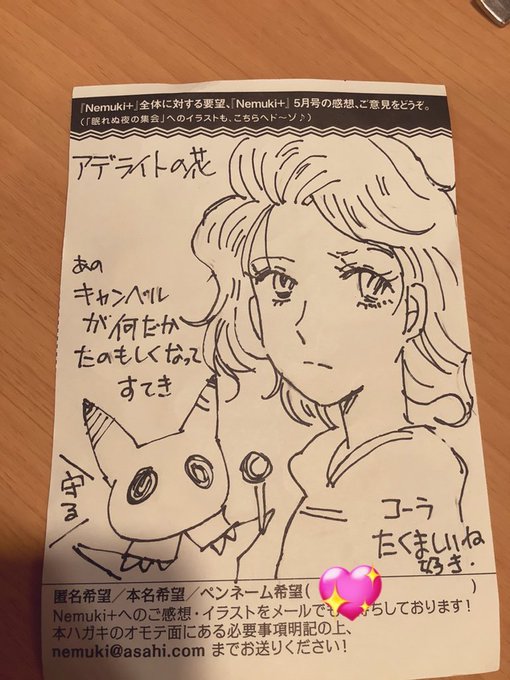 『Nemuki+』全体に対する要望、『Nemuki+』5月号の感想、ご意見をどうぞ。
(「眠れぬ夜の集会」へのイラストも、こちらへド〜ゾ♪)
アデライトの花
あの
キャンベル
が何だか
たのもしくなって
すてき
守る
コーラ
たくましいね
好き.
匿名希望／本名希望／ペンネーム希望( )
Nemuki+へのご感想・イラストをメールで ちしております!
本ハガキのオモテ面にある必要事項明記の上、
nemuki@asahi.com までお送りください!